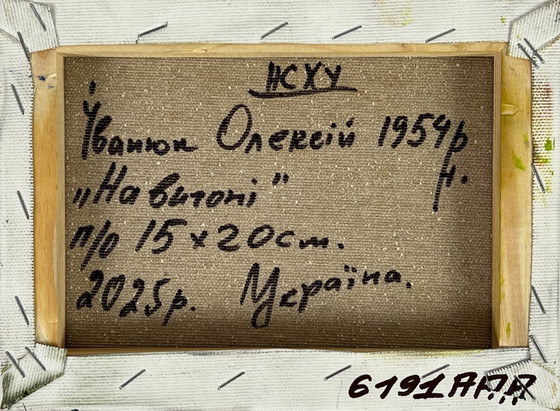 НСХУ
Іванюк Олексій 1954р
н.
„На витоні"
п/о 15 х 20 см.
2025р. Україна.
6191АРР